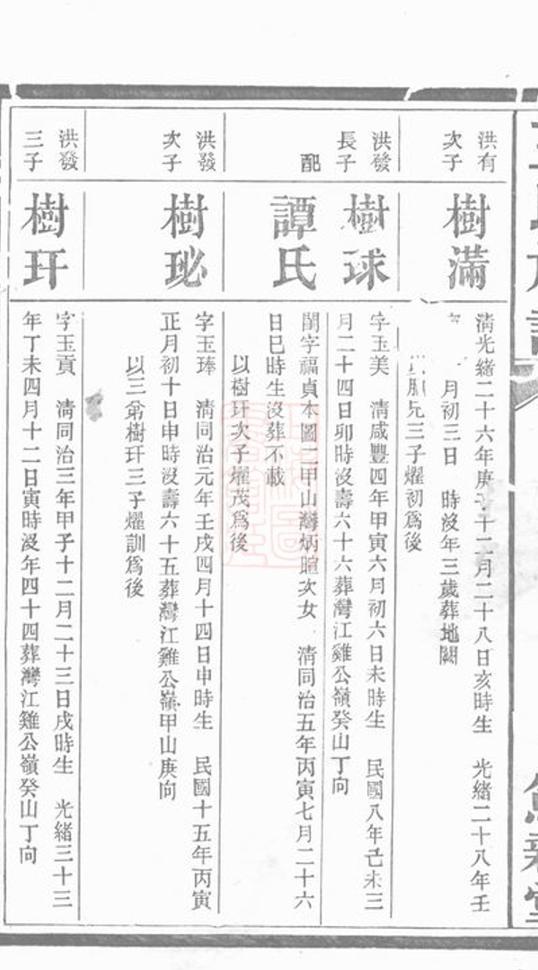 洪有
次子
樹滿
清光緒二十六年庚子十二月二十八日亥時生 光緒二十八年壬
月初三日 時沒年三歲葬地闕
兄三子燿初爲後
洪發
長子
樹球
字玉美 清咸豐四年甲寅六月初六日未時生 民國八年己未三
月二十四日卯時沒壽六十六葬灣江雞公嶺癸山丁向
配
譚氏
閨字福貞本圖二甲山灣炳暄次女 清同治五年丙寅七月二十六
日巳時生沒葬不載
以樹玕次子燿茂爲後
洪發
次子
樹珌
字玉琫 清同治元年壬戌四月十四日申時生 民國十五年丙寅
正月初十日申時沒壽六十五葬灣江雞公嶺甲山庚向
以三弟樹玕三子燿訓爲後
洪發
三子
樹玕
字玉貢 清同治三年甲子十二月二十三日戌時生 光緒三十三
年丁未四月十二日寅時沒年四十四葬灣江雞公嶺癸山丁向